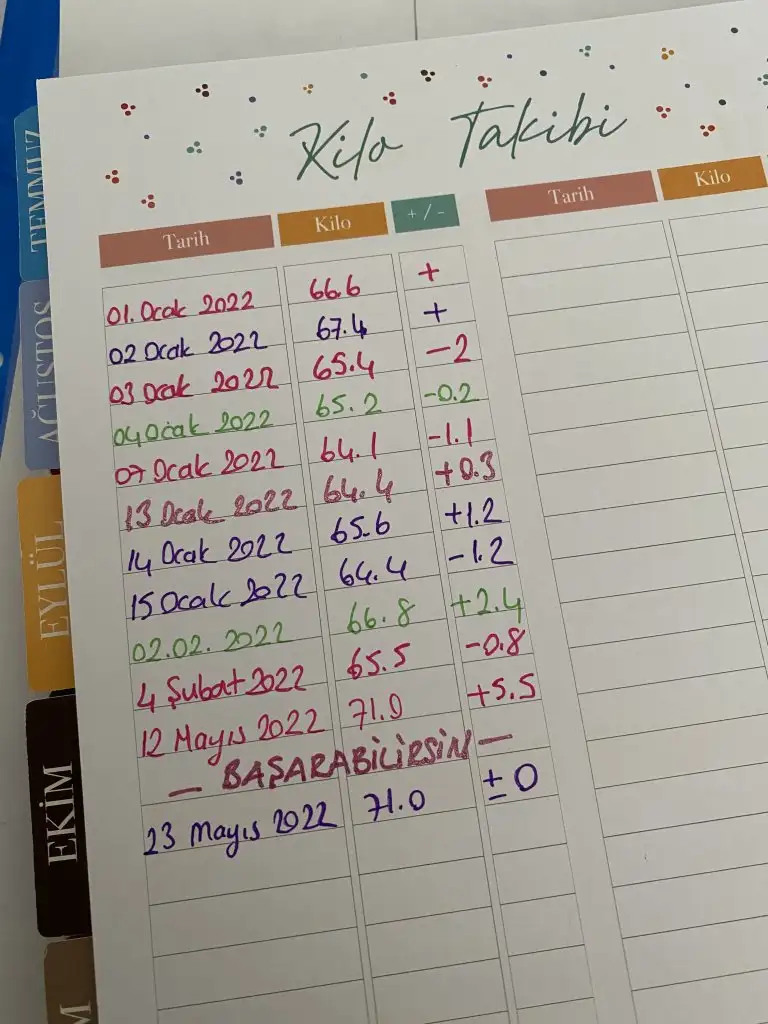 Kilo Takibi
Tarih Kilo +/- Tarih Kilo
01. Ocak 2022 66.6 +
02 Ocak 2022 67.4 +
03 Ocak 2022 65.4 -2
04 Ocak 2022 65.2 -0.2
07 Ocak 2022 64.1 -1.1
13 Ocak 2022 64.4 +0.3
14 Ocak 2022 65.6 +1.2
15 Ocak 2022 64.4 -1.2
02.02. 2022 66.8 +2.4
4 Şubat 2022 65.5 -0.8
12 Mayıs 2022 71.0 +5.5
— BAŞARABİLİRSİN —
23 Mayıs 2022 71.0 ± 0
TEMMUZ
AĞUSTOS
EYLÜL
EKİM